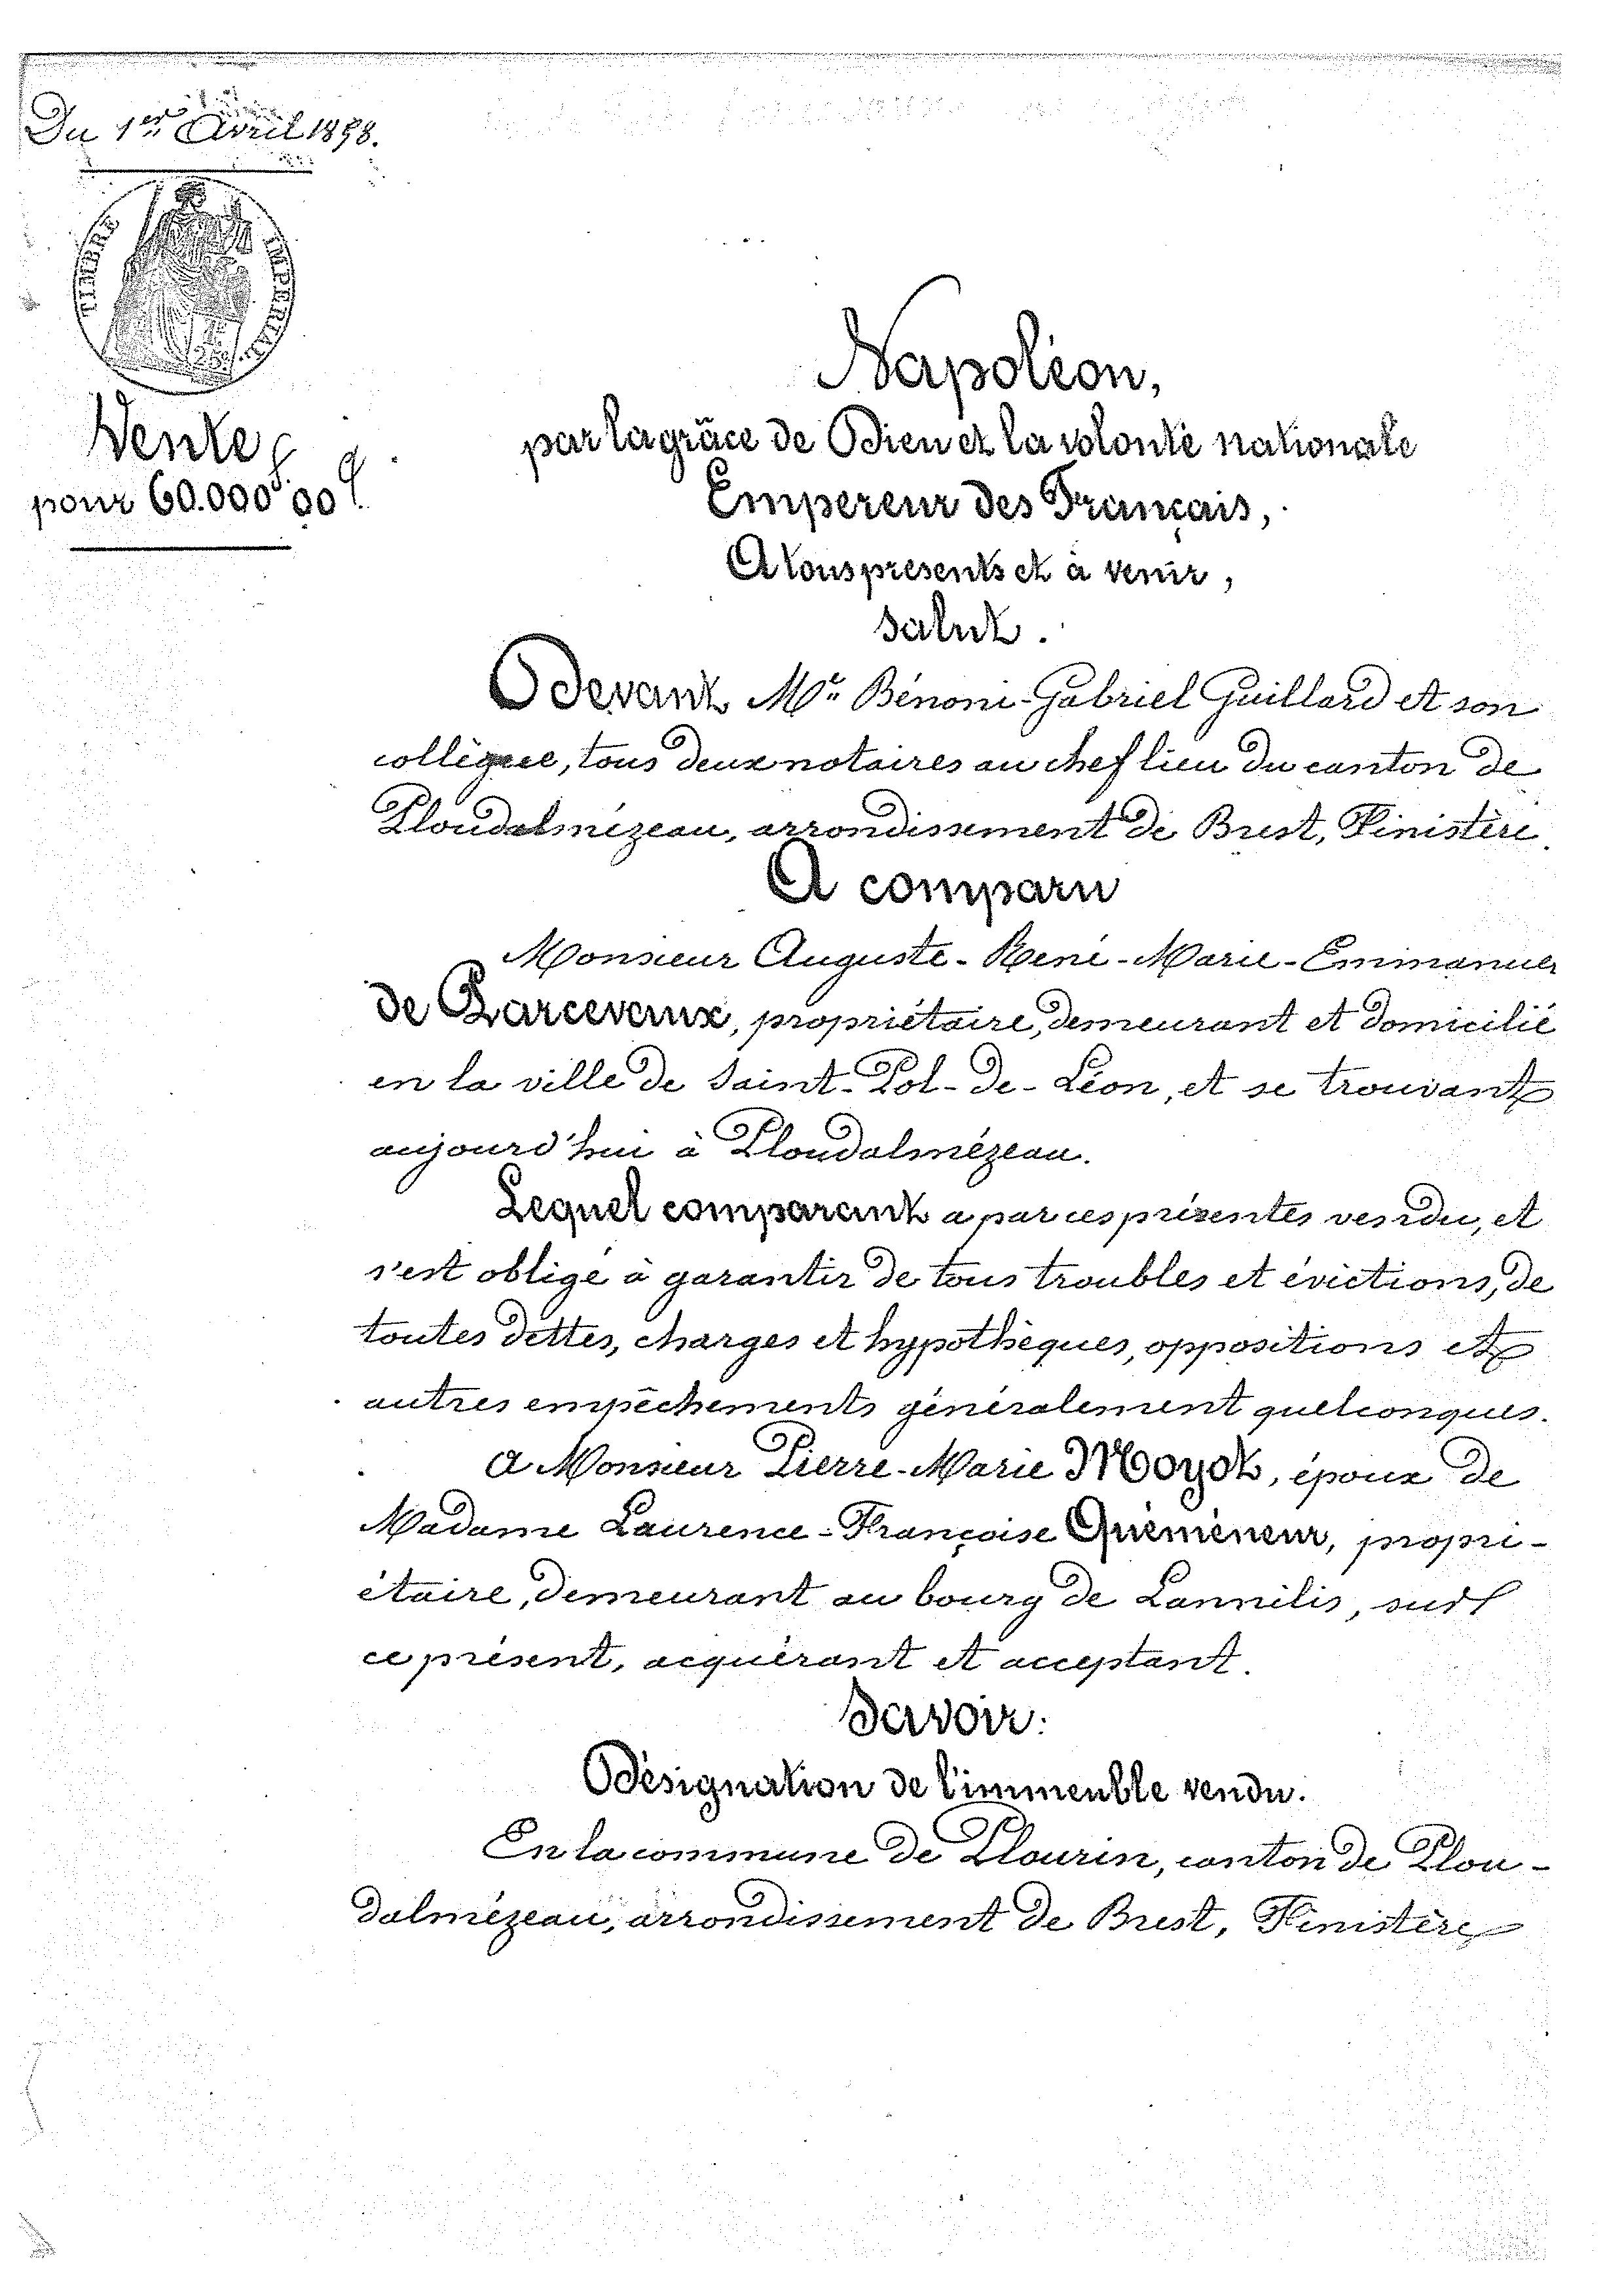 Du 1er Avril 1858.
TIMBRE IMPERIAL
25c
Vente
pour 60.000f 00c
Napoléon,
par la grâce de Dieu et la volonté nationale
Empereur des Français,
A tous présents et à venir,
salut.
Devant Me Bénoni-Gabriel Guillard et son
collègue, tous deux notaires au chef lieu du canton de
Ploudalmézeau, arrondissement de Brest, Finistère.
A comparu
Monsieur Auguste-René-Marie-Emmanuel
de Parcevaux, propriétaire, demeurant et domicilié
en la ville de Saint-Pol-de-Léon, et se trouvant
aujourd'hui à Ploudalmézeau.
Lequel comparant a par ces présentes vendu, et
s'est obligé à garantir de tous troubles et évictions, de
toutes dettes, charges et hypothèques, oppositions et
autres empêchements généralement quelconques.
A Monsieur Pierre-Marie Moyot, époux de
Madame Laurence-Françoise Quéméneur, propri-
étaire, demeurant au bourg de Lannilis, sur
ce présent, acquérant et acceptant.
Savoir:
Désignation de l'immeuble vendu.
En la commune de Plourin, canton de Plou-
dalmézeau, arrondissement de Brest, Finistère